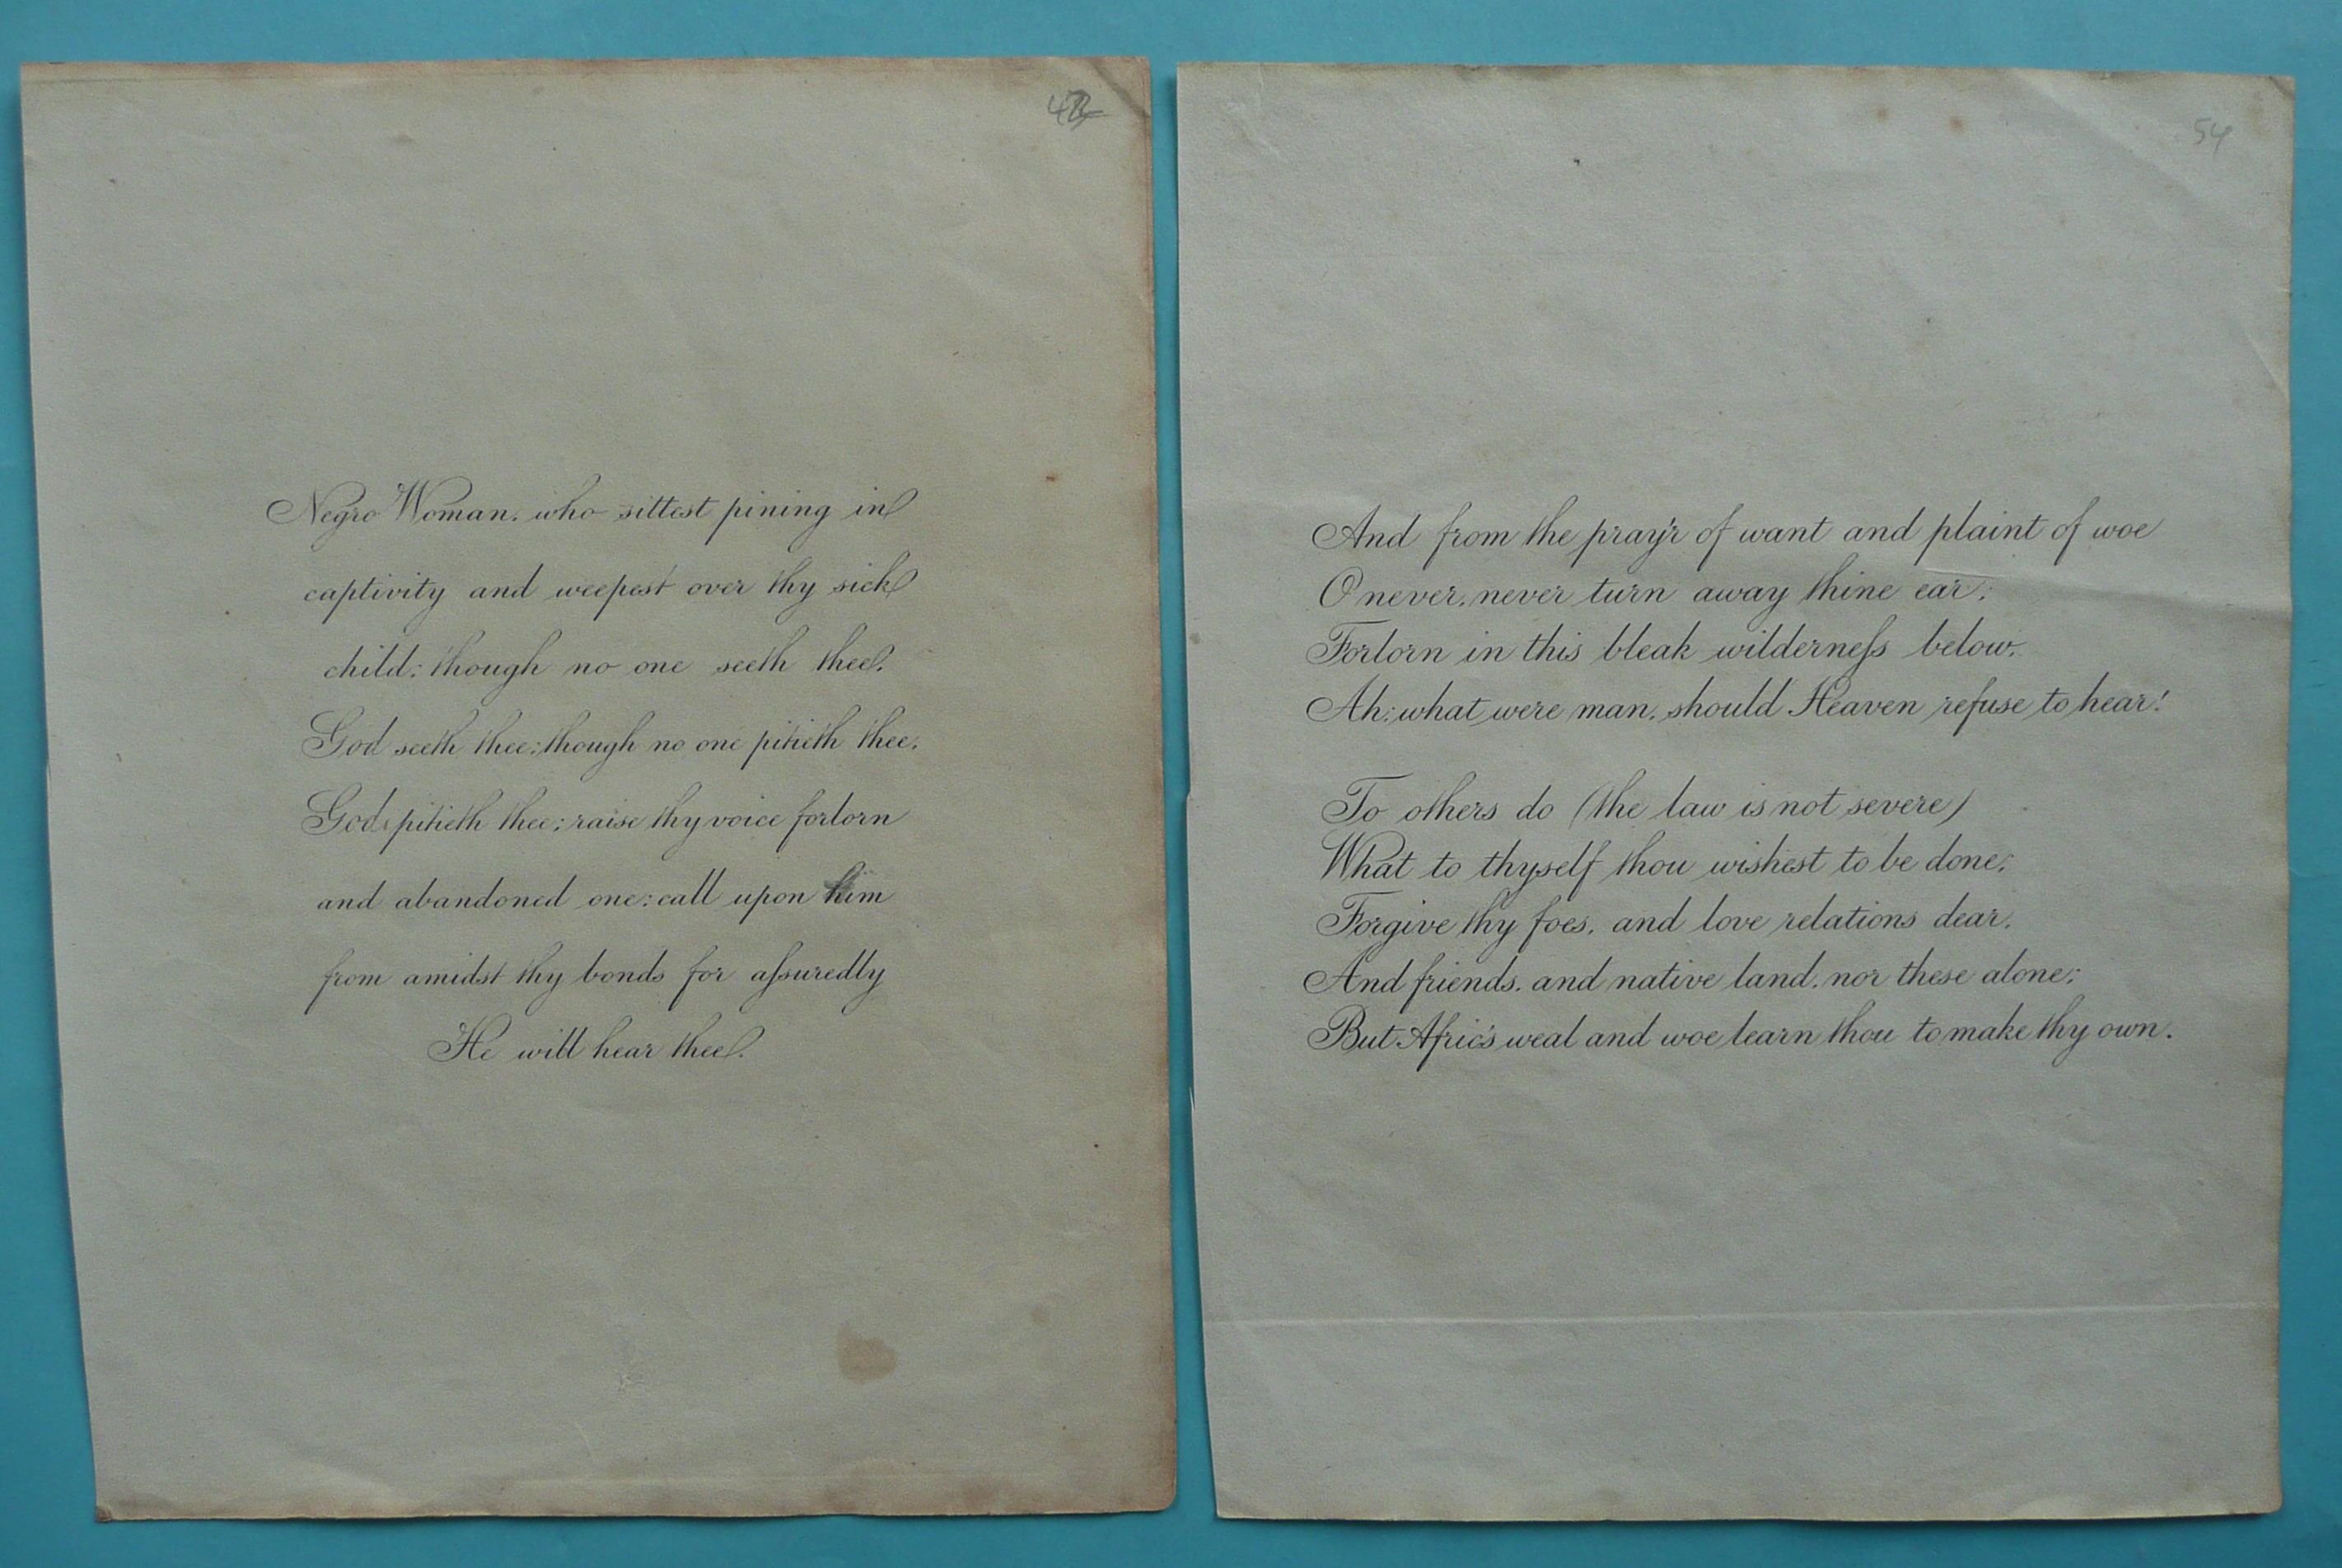 Negro Woman. who sittest pining in
captivity and weepest over thy sick
child: though no one seeth thee.
God seeth thee: though no one pitieth thee.
God pitieth thee: raise thy voice forlorn
and abandoned one: call upon him
from amidst thy bonds for aſsuredly
He will hear thee.
54
And from the pray'r of want and plaint of woe
O never, never turn away thine ear;
Forlorn in this bleak wilderneſs below.
Ah: what were man, should Heaven refuse to hear!
To others do (the law is not severe)
What to thyself thou wishest to be done;
Forgive thy foes, and love relations dear,
And friends, and native land, nor these alone;
But Afric's weal and woe learn thou to make thy own.